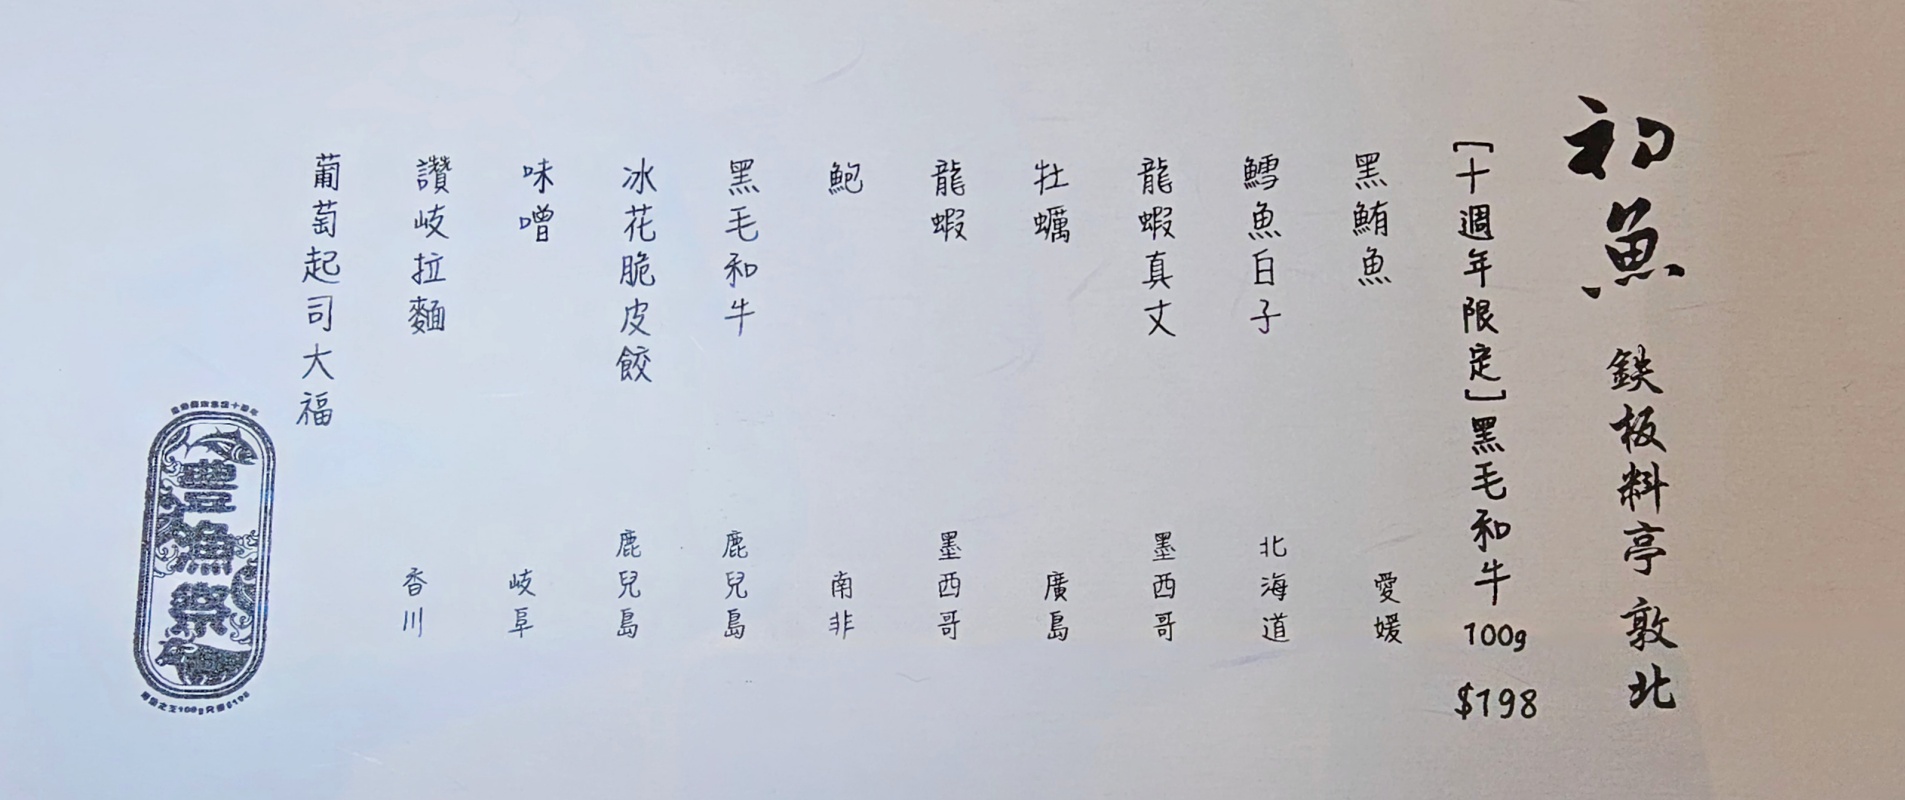 初魚 鉄板料亭 敦北
[十週年限定]黑毛和牛 100g $198
黑鮪魚 愛媛
鱈魚白子 北海道
龍蝦真丈 墨西哥
牡蠣 廣島
龍蝦 墨西哥
鮑 南非
黑毛和牛 鹿兒島
冰花脆皮餃 鹿兒島
味噌 岐阜
讚岐拉麵 香川
葡萄起司大福
豐漁祭